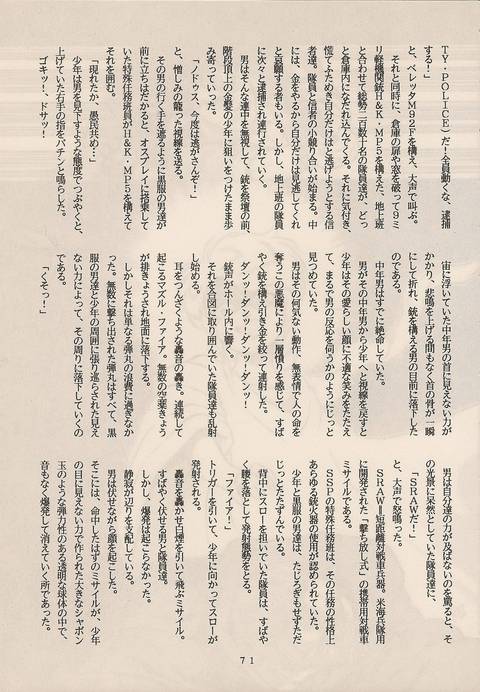 TY・POLICE）だ！全員動くな、逮捕
する！」
と、ベレッタM92Fを構え、大声で叫ぶ。
それと同時に、倉庫の扉や窓を破って9ミ
リ軽機関銃H&K・MP5を構えた、地上班
と合わせて総勢二百数十名の隊員達が、どっ
と倉庫内になだれ込んでくる。それに気付き、
慌てふためき自分だけはと逃げようとする信
者達。隊員と信者の小競り合いが始まる。中
には、金をやるから自分だけは見逃してくれ
と哀願する者もいる。しかし、地上班の隊員
に次々と逮捕され連行されていく。
男はそんな連中を無視して、銃を祭壇の前、
階段頂上の金髪の少年に狙いをつけたまま歩
み寄っていった。
「ノドゥス、今度は逃がさんぞ！」
と、憎しみの籠った視線を送る。
その男の行く手を遮るように黒服の男達が
前に立ちはだかると、オスプレイに搭乗して
いた特殊任務班員がH&K・MP5を構えて
それを囲む。
「現れたか、愚民共め…」
少年は男を見下すような態度でつぶやくと、
上げていた右手の指をパチンと鳴らした。
ゴキッ！、ドサッ！
宙に浮いていた中年男の首に見えない力が
かかり、悲鳴を上げる間もなく首の骨が一瞬
にして折れ、銃を構える男の目前に落下した
のである。
中年男はすでに絶命していた。
男がその中年男から少年へと視線を戻すと
少年はその愛らしい顔に不適な笑みをたたえ
て、まるで男の反応を伺うかのようにじっと
見つめていた。
男はその何気ない動作、無表情で人の命を
奪うこの悪魔により一層憤りを感じて、すば
やく銃を構え引き金を絞って連射した。
ダンッ！ダンッ！ダンッ！ダンッ！
銃声がホール内に響く。
それを合図に取り囲んでいた隊員達も乱射
し始める。
耳をつんざくような轟音の轟き。連続して
起こるマズル・ファイア。無数の空薬きょう
が排きょうされ地面に落下する。
しかしそれは単なる弾丸の浪費に過ぎなか
った。無数に撃ち出された弾丸はすべて、黒
服の男達と少年の周囲に張り巡らされた見え
ない力によって、その周りに落下していくの
である。
「くそっ！」
男は自分達の力が及ばないのを罵ると、そ
の光景に呆然としていた隊員達に、
「SRAWだ！」
と、大声で怒鳴った。
SRAW＝短距離対戦車兵器。米海兵隊用
に開発された「撃ち放し式」の携帯用対戦車
ミサイルである。
SSPの特殊任務班は、その任務の性格上
あらゆる銃火器の使用が認められていた。
少年と黒服の男達は、たじろぎもせずただ
じっとたたずんでいる。
背中にスローを担いでいた隊員は、すばや
く腰を落として発射態勢をとる。
「ファイア！」
トリガーを引いて、少年に向かってスローが
発射される。
轟音を轟かせ白煙を引いて飛ぶミサイル。
すばやく伏せる男と隊員達。
しかし、爆発は起こらなかった。
静寂が辺りを支配している。
男は伏せながら顔を起こした。
そこには、命中したはずのミサイルが、少年
の目に見えない力で作られた大きなシャボン
玉のような弾力性のある透明な球体の中で、
音もなく爆発して消えていく所であった。
71